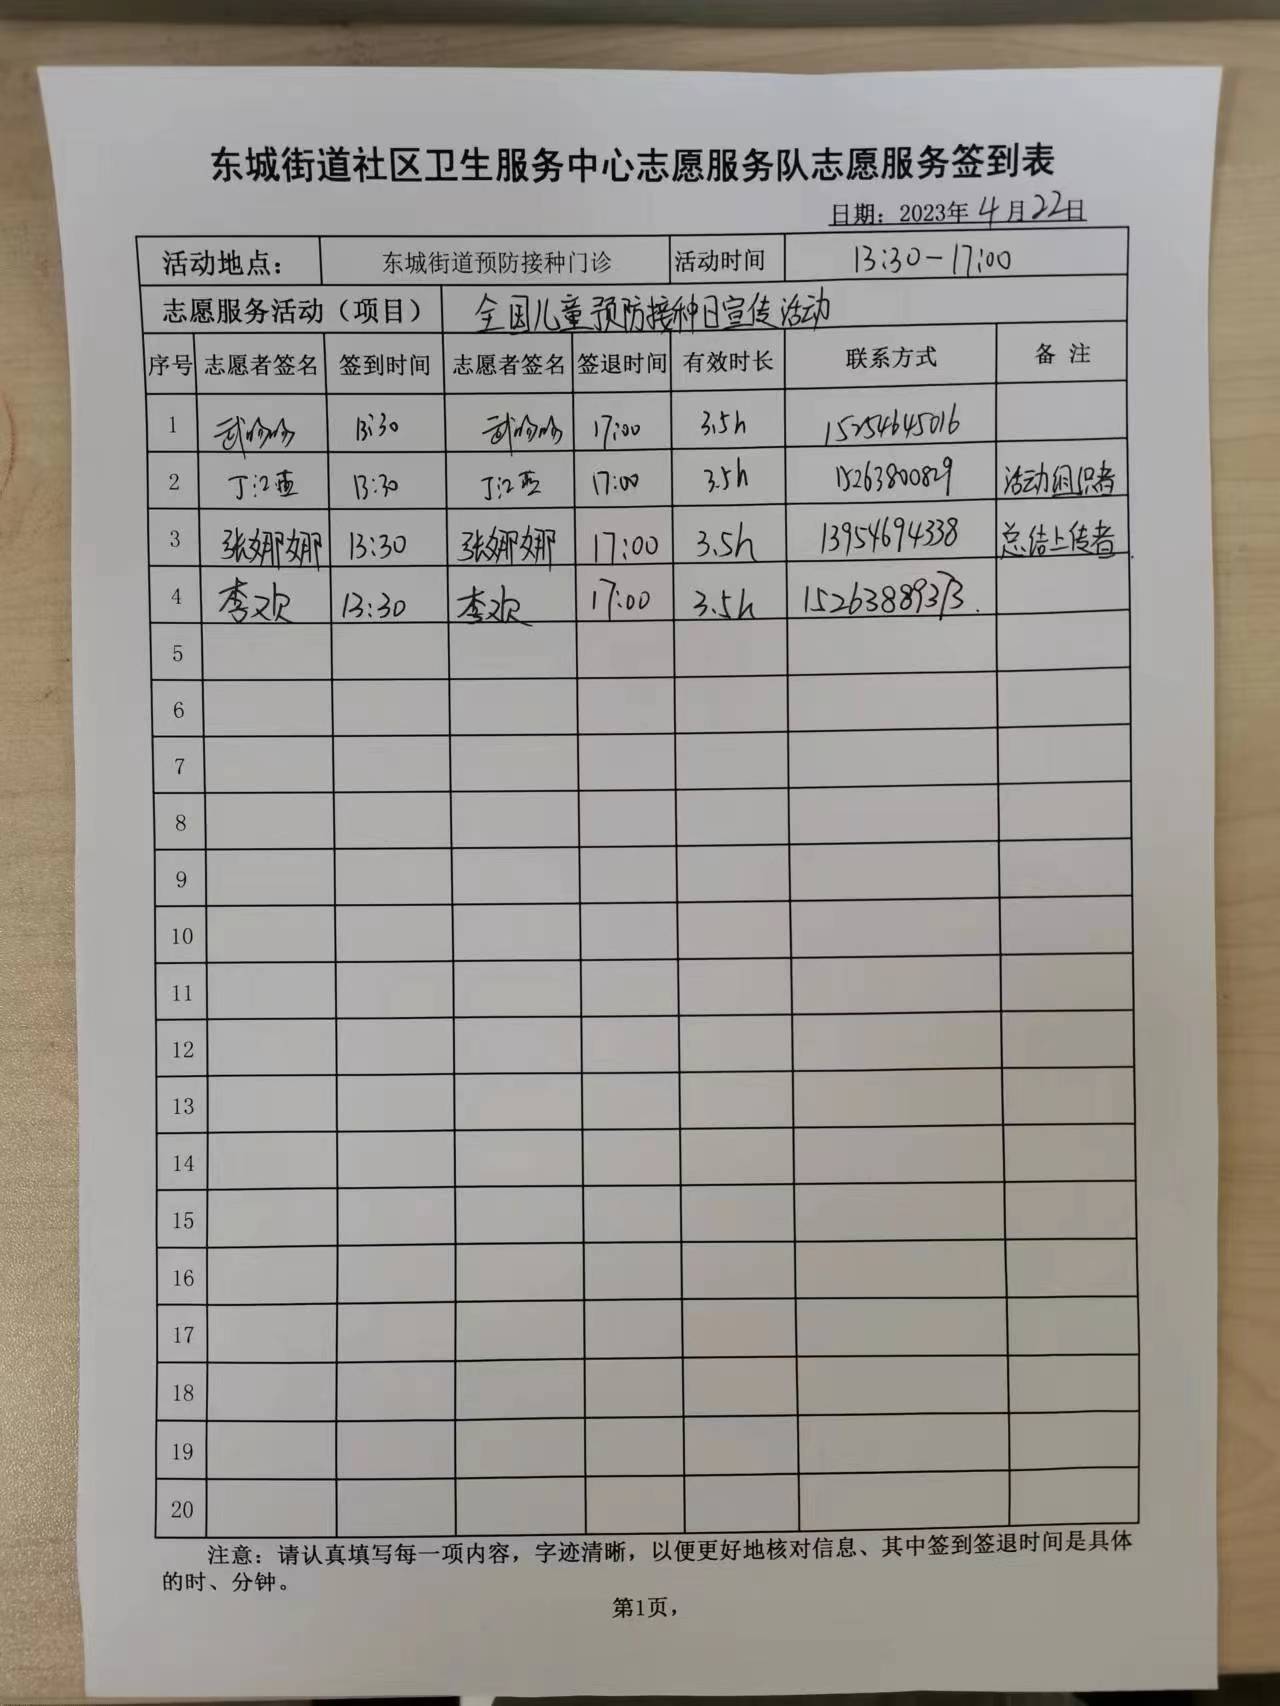 东城街道社区卫生服务中心志愿服务队志愿服务签到表
日期：2023年4月22日
活动地点： 东城街道预防接种门诊 活动时间 13:30-17:00
志愿服务活动（项目） 全国儿童预防接种日宣传活动
序号 志愿者签名 签到时间 志愿者签名 签退时间 有效时长 联系方式 备 注
1 13:30 17:00 3.5h 15254645016
2 丁江燕 13:30 丁江燕 17:00 3.5h 15263800829 活动组织者
3 张娜娜 13:30 张娜娜 17:00 3.5h 13954694338 总结上传者
4 李欢 13:30 李欢 17:00 3.5h 15263889373.
5
6
7
8
9
10
11
12
13
14
15
16
17
18
19
20
注意：请认真填写每一项内容，字迹清晰，以便更好地核对信息、其中签到签退时间是具体
的时、分钟。
第1页，